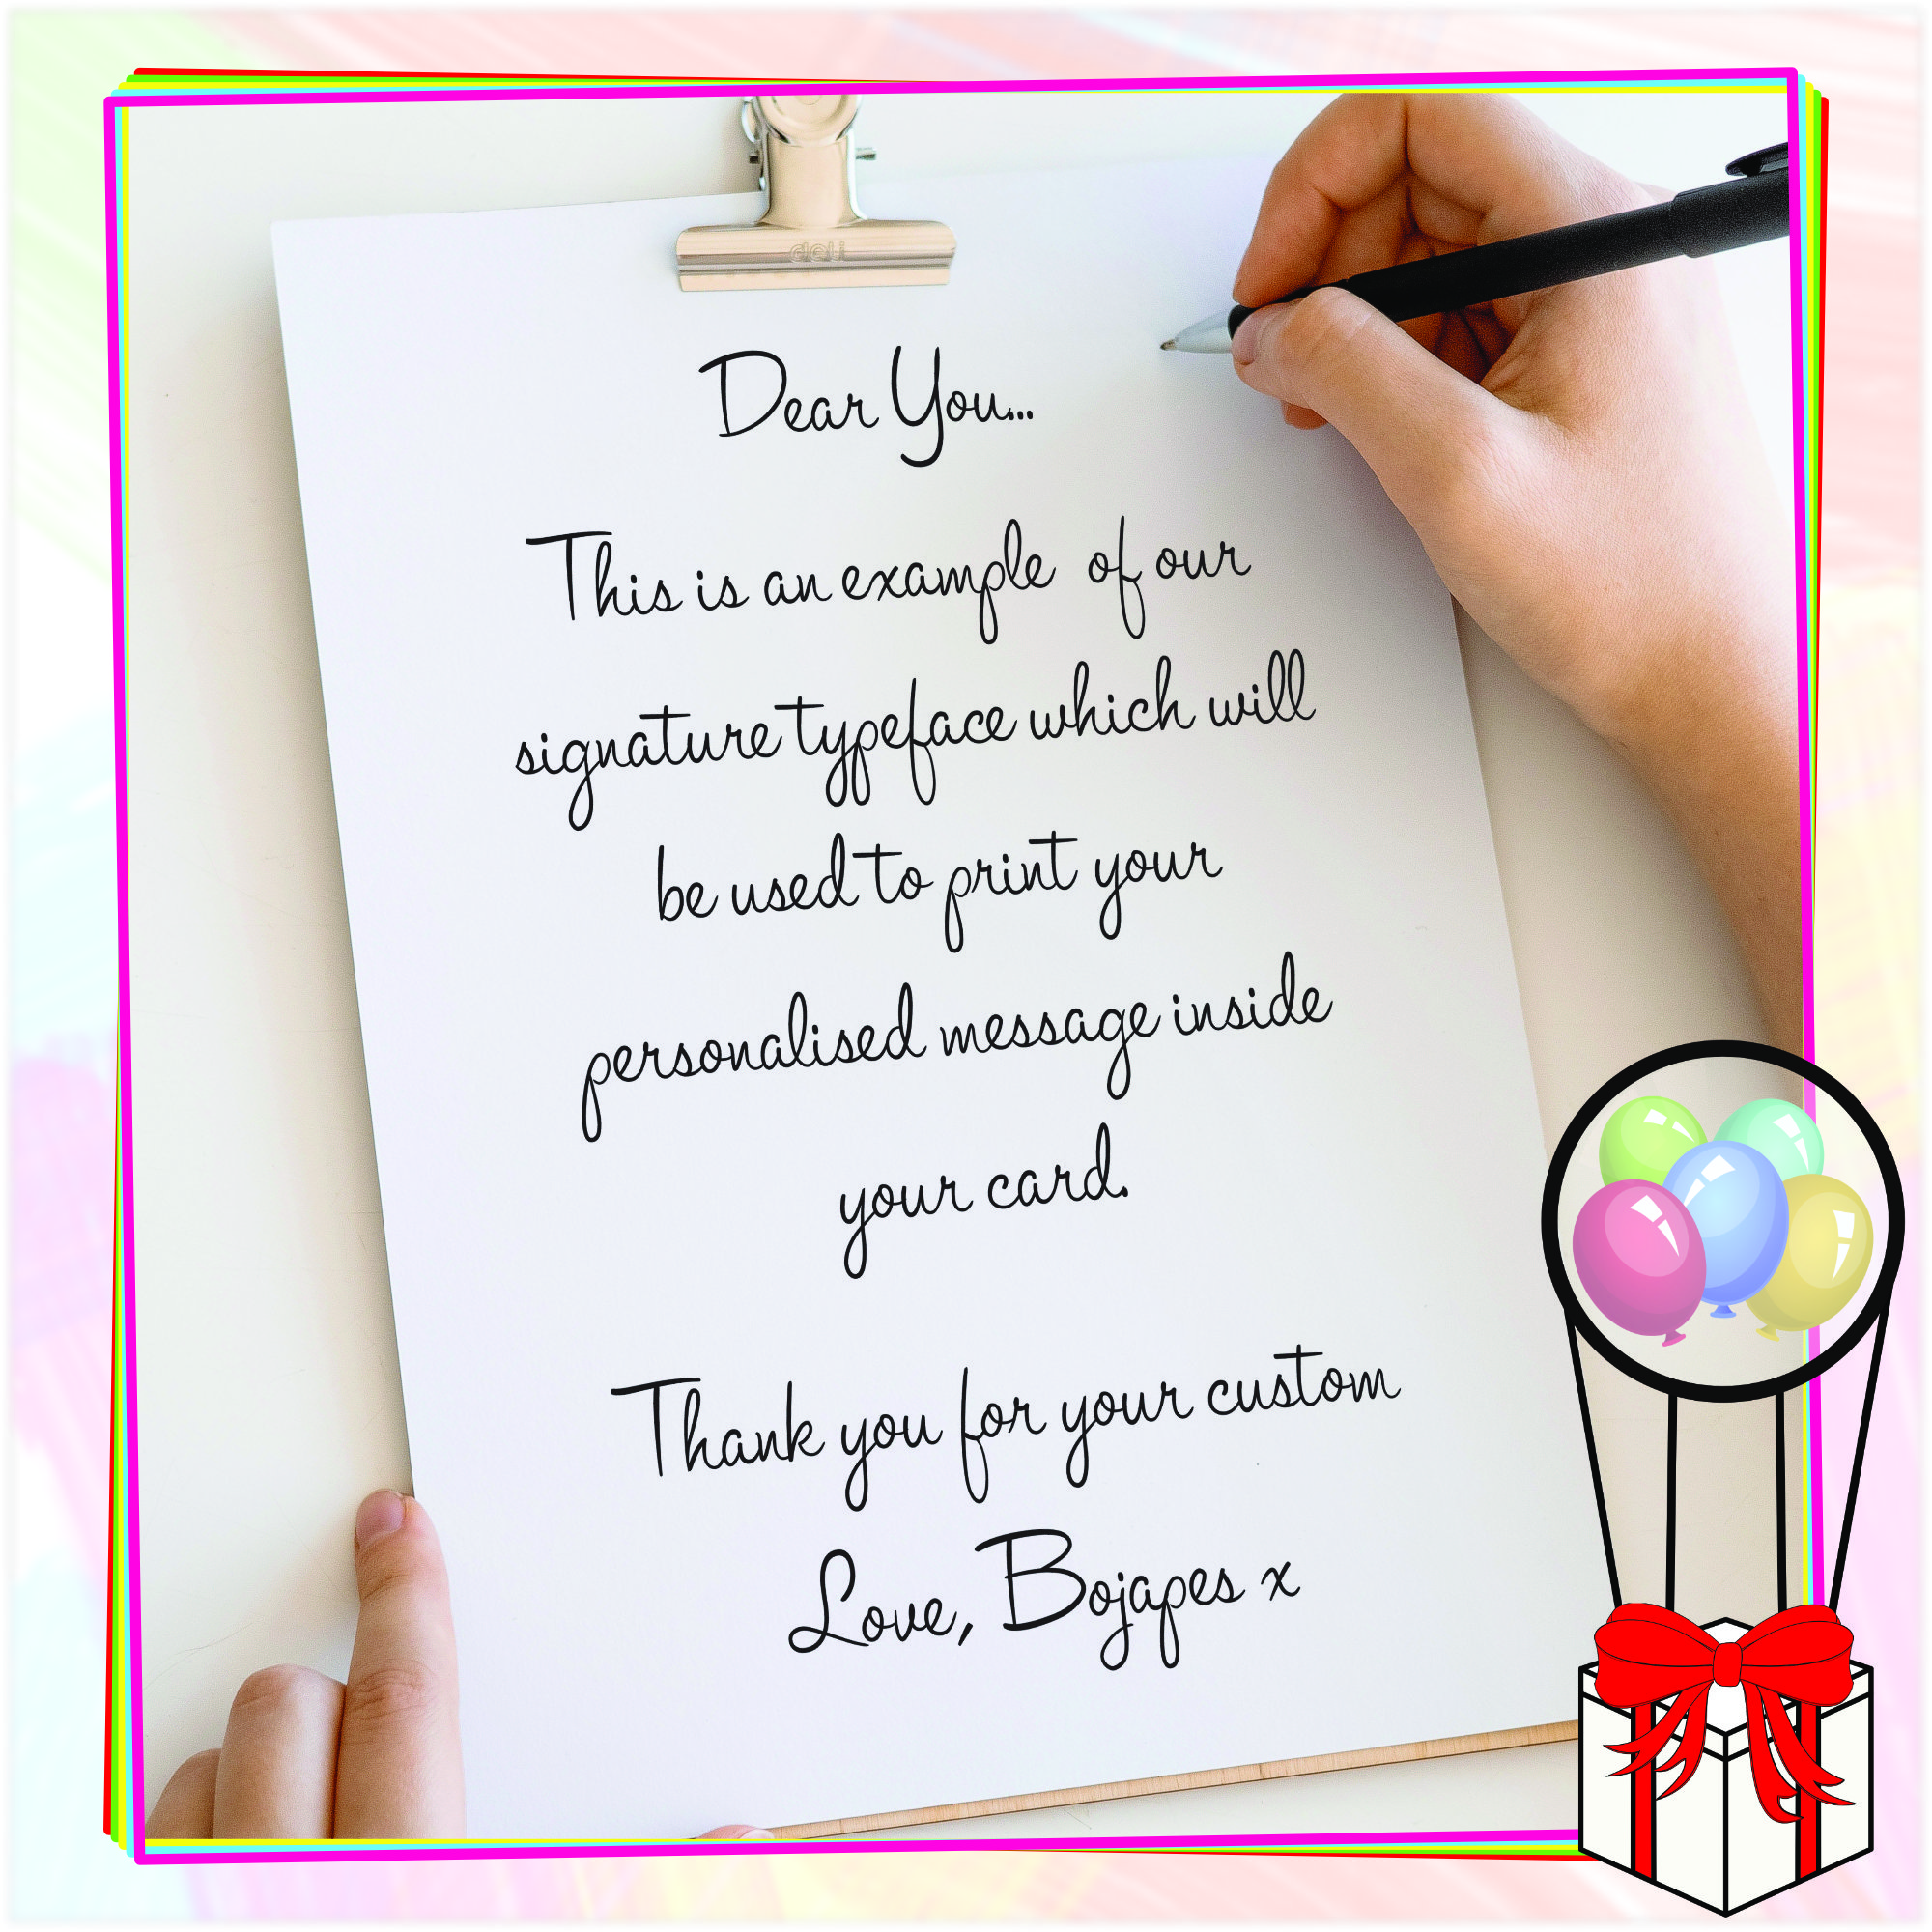 deli
Dear You...
This is an example of our
signature typeface which will
be used to print your
personalised message inside
your card.
Thank you for your custom
Love, Bojapes x